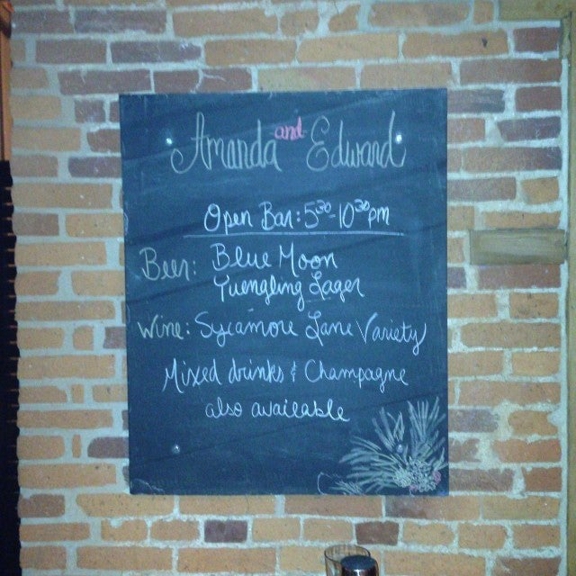 Amanda and Edward
Open Bar: 5:30-10:30pm
Beer: Blue Moon
Yuengling Lager
Wine: Sycamore Lane Variety
Mixed drinks & Champagne
also available